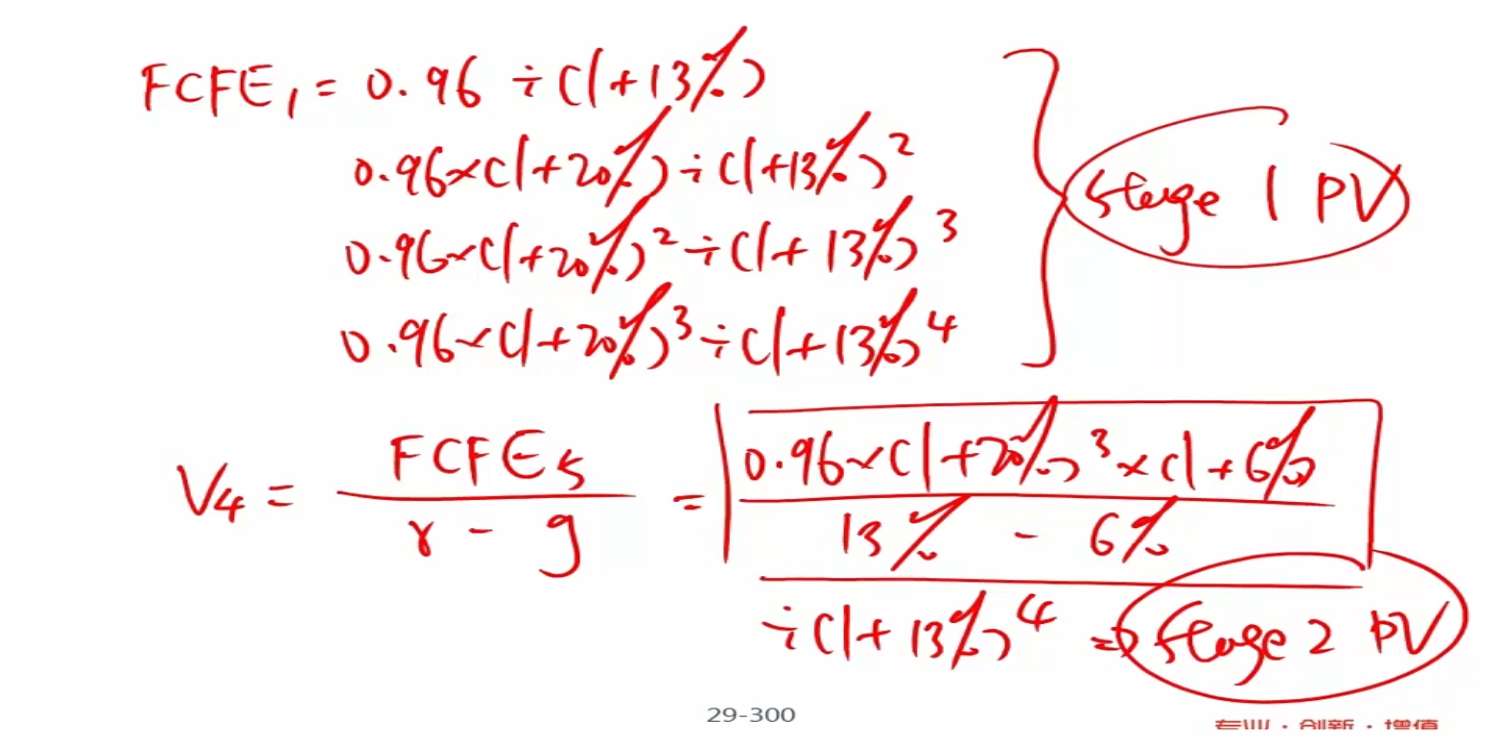 FCFE₁ = 0.96 ÷ (1+13%)
0.96×(1+20%) ÷ (1+13%)²
0.96×(1+20%)² ÷ (1+13%)³
0.96×(1+20%)³ ÷ (1+13%)⁴
Stage 1 PV
V₄ = FCFE₅ / r - g = 0.96×(1+20%)³×(1+6%) / 13% - 6%
÷(1+13%)⁴ ⇒ Stage 2 PV
29-300
专业·创新·增值